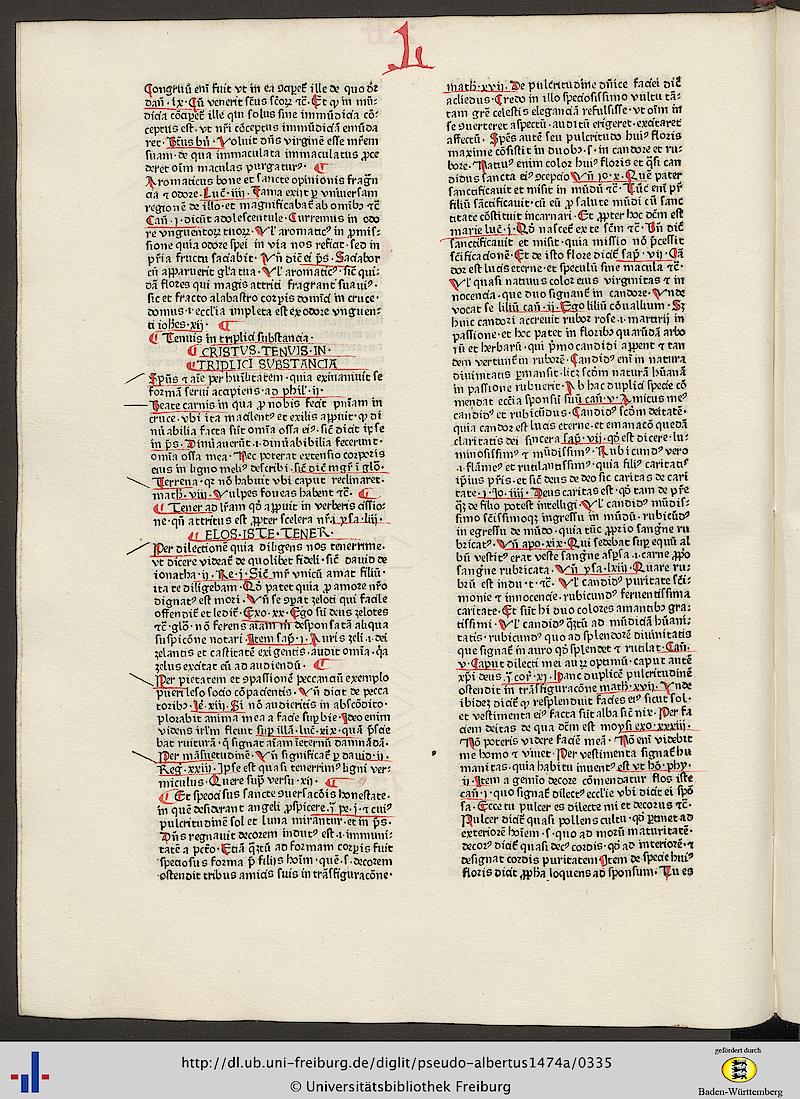 L
Congruū eni fuit vt in ea ꝯcipet᷑ ille de quo dr̄
dañ . ix . Cū venerit sc̄us sc̄oꝝ ⁊c̄. Et ꝙ in mū-
ceptus est . vt nr̄i cōceptus immūdicia emūda
suam . de qua immaculata immaculatus ꝓce
deret oīm maculas purgatur⁹. ¶
Aromaticus bone et sancte opinionis fragñ
cia ⁊ odore . Luc̄ . iiij . Fama exijt ꝑ vniuersam
regionē de illo . et magnificabat᷑ ab omībꝫ ⁊c̄
Cañ . j . dicūt adolescentule . Curremus in odo
re vnguentoꝝ tuoꝝ. Vꝉ aromatic⁹ in ꝓmis-
sione quia odore spei in via nos reficit . sed in
cū apparuerit gl̄a tua . Vꝉ aromatic⁹ . sic̄ qui-
dā flores qui magis attriti fragrant suaui⁹.
sic et fracto alabastro corpis domici in cruce .
domus . i . eccl̄ia impleta est ex odore vnguen-
ti ioh̄es . xij . ¶
¶ Tenuis in triplici substancia .
¶ CRISTVS . TENVIS . IN .
¶ TRIPLICI SVBSTANCIA
Sp̄us ⁊ aīe per hūilitatem . quia exinaniuit se
formā serui accipiens . ad phil̄ . ij .
Beate carnis in qua ꝓ nobis fecit pn̄iam in
cruce . vbi ita maciēnt⁹ et exilis apꝑuit . ꝙ di
nūabilia facta sūt omīa ossa ei⁹ . sic̄ dicit ip̄se
in p̄s . Dinūauerūt . i . dinūabibilia fecerunt .
omīa ossa mea . Nec poterat extensio corporis
eius in ligno meli⁹ describi . sic̄ dic̄ mgr̄ i glō .
Terrena . qꝛ nō habuit vbi caput reclinaret .
math . viij . Vulpes foueas habent ⁊c̄ . ¶
¶ Tener ad lr̄am qꝺ apꝑuit in verberis cissio-
ne . qñ attritus est ꝓpter scelera nr̄a . ysa . liij .
¶ FLOS . ISTE . TENER .
Per dilectionē quia diligens nos tenerrime .
vt dicere videat᷑ de quolibet fideli . sic̄ dauid de
ionatha . ij . Re . j . Sic̄ mr̄ vnicū amat filiū .
ita te diligebam . Qꝺ patet quia ꝓ amore nr̄o
offendit᷑ et ledit᷑ . Exo . xx . Ego sū deus zelotes
⁊c̄ . glō . nō ferens aīam m̄ desponsatā aliqua
suspicōne notari . Item sap̄ . j . Auris zeli . i . dei
zelantis et castitatē exigentis . audit omīa . qꝛa
zelus excitat eū ad audiendū . ¶
Per pietatem et ꝯpassionē peccanciū exemplo
pueri leso socio cōpacientis . Vñ dicat de pecca
toribꝫ . Ie . xiij . Si nō audieritis in abscōdito .
plorabit anima mea a facie supbie . Ideo enim
videns irl̄m fleuit sup illā . luc̄ . xix . quā ꝑsc̄ie
bat ruiturā . ꝙ signat aīam ieternū damnādā .
Per māsuetudinē . Vñ significat᷑ ꝑ dauid . ij .
Reg . xxiij . Ip̄se est quasi tenerrim⁹ ligni ver-
miculus . Quere sup̄ versu . xij . ¶
¶ Et speciosus sancte ꝯuersacōis honestate .
in quē desiderant angeli ꝓspicere . j . pe . j . ⁊ cui⁹
pulcritudinē sol et luna mirāntur . et in p̄s .
Dn̄s regnauit decorem indut⁹ est . i . immuni-
tatē a pctō . Etiā qꝫtū ad formam corpis fuit
speciosus forma p̄ filijs hoīm . quē . s . decorem
ostendit tribus amicis suis in trāsfiguracōne .
math . xvij . De pulcritudine dn̄ice faciei dic̄
tam gr̄e celestis eleganciā refulsisse . vt oīm in
se ꝯuerteret aspectū . auditū erigeret . excitaret
affectū . Spēs autē seu pulcritudo hui⁹ floris
maxime cōsistit in duobꝫ . s . in candore et ru-
bore . Natiu⁹ enim color hui⁹ floris et q̄si can
didus sancta ei⁹ ꝯcepcio . Vñ Jo . x . Quē pater
sanctificauit et misit in mūdū ⁊c̄ . Tūc eni pr̄
filiū sāctificauit . cū eū ꝓ salute mūdi cū sanc
titate cōstituit incarnari . Et ꝓpter hoc dēm est
marie luc̄ . j . Qꝺ nascet᷑ ex te sc̄m ⁊c̄ . Vñ dic̄
sanctificauit et misit . quia missio nō p̄cessit
sc̄ificacionē . Et de isto flore dicit᷑ sap̄ . vij . Cā
dor est lucis eterne . et speculū sine macula ⁊c̄ .
Vꝉ quasi natiuus color eius virginitas ⁊ in
nocencia . que duo signant᷑ in candore . Vnde
vocat se liliū cañ . ij . Ego liliū cōuallium . Sꝫ
huic candori accreuit rubor rose . i . martirij in
passione . et hoc patet in floribꝫ quarūdā arbo
rū et herbarū . qui p̄mo candidi apꝑent ⁊ tan
dem vertunt᷑ in ruborē . Candid⁹ eni in natura
diuinitatis ꝑmansit . licꝫ scd̄m naturā hūanā
in passione rubuerit . Ab hac duplici specie cō
mendat eccl̄ia sponsū suū cañ . v . Amicus me⁹
candid⁹ et rubicūdus . Candid⁹ scd̄m deitatē .
quia candor est lucis eterne . et emanacō quedā
claritatis dei sincera sap̄ . vij . qꝺ est dicere . lu-
minosissim⁹ ⁊ mūdissim⁹ . Rubicund⁹ vero
. i . flāme⁹ et rutilantissim⁹ . quia fili⁹ caritatis
ip̄ius pr̄is . et sic̄ deus de deo sic caritas de cari
tate . j . Jo . iiij . Deus caritas est . qꝺ tam de pr̄e
qꝫ de filio potest intelligi . Vꝉ candid⁹ mūdis-
simo sc̄issimoqꝫ ingressu in mūdū . rubicūd⁹
in egressu de mūdo . quia tūc ꝓprio sangne ru
bricat⁹ . Vñ apo . xix . Qui sedebat sup equū al
bū vestit⁹ erat veste sangne aspsa . i . carne ꝓpo
sangne rubricata . Vñ ysa . lxiij . Quare ru-
brū est indu . t . ⁊c̄ . Vꝉ candid⁹ puritate sci-
monie ⁊ innocencie . rubicund⁹ feruentissima
caritate . Et sūt hi duo colores amantibꝫ gra-
tissimi . Vꝉ candid⁹ qꝫtū ad mūdiciā hūani-
tatis . rubicund⁹ quo ad splendorē diuinitatis
que signat᷑ in auro qꝺ splendet ⁊ rutilat . Cañ .
v . Caput dilecti mei aurꝫ optimū . caput autē
xp̄i deus . j . cor̄ . xj . Hanc duplicē pulcritudinē
ostendit in trāsfiguracōne math . xvij . Vnde
ibidem dicit᷑ ꝙ resplenduit facies ei⁹ sicut sol .
et vestimenta ei⁹ facta sūt alba sic̄ nix . Per fa
ciem deitas de qua dc̄m est moysi exo . xxxiij .
Nō poteris videre faciē meā . Nō eni videbit
me homo ⁊ viuet . Per vestimenta signat᷑ hu
manitas . quia habitu inuent⁹ est vt hō . phy .
ij . Item a gemīo decore cōmendatur flos iste
cañ . j . quo signat᷑ dilect⁹ eccl̄ie vbi dicit ei spō
sa . Ecce tu pulcer es dilecte mi et decorus ⁊c̄ .
Pulcer dicit᷑ quasi pollens cultu . qꝺ ꝑtinet ad
exteriorē hoīem . s . quo ad morū maturitatē .
decor⁹ dicit᷑ quasi dec⁹ cordis . qꝺ ad interiorē . ⁊
designat cordis puritatem . Item de specie hui⁹
floris dicit ꝓph̄a loquens ad sponsum . Tu es
http://dl.ub.uni-freiburg.de/diglit/pseudo-albertus1474a/0335
© Universitätsbibliothek Freiburg
gefördert durch
Baden-Württemberg